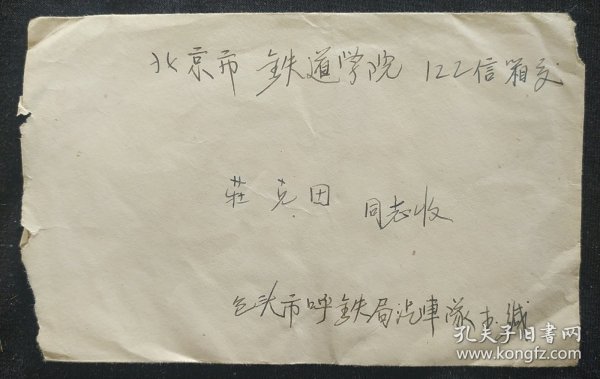 北京市 鉄道学院 122信箱交
莊克因 同志收
包头市呼鉄局汽車隊 缄
孔夫子旧书网
www.kongfz.com